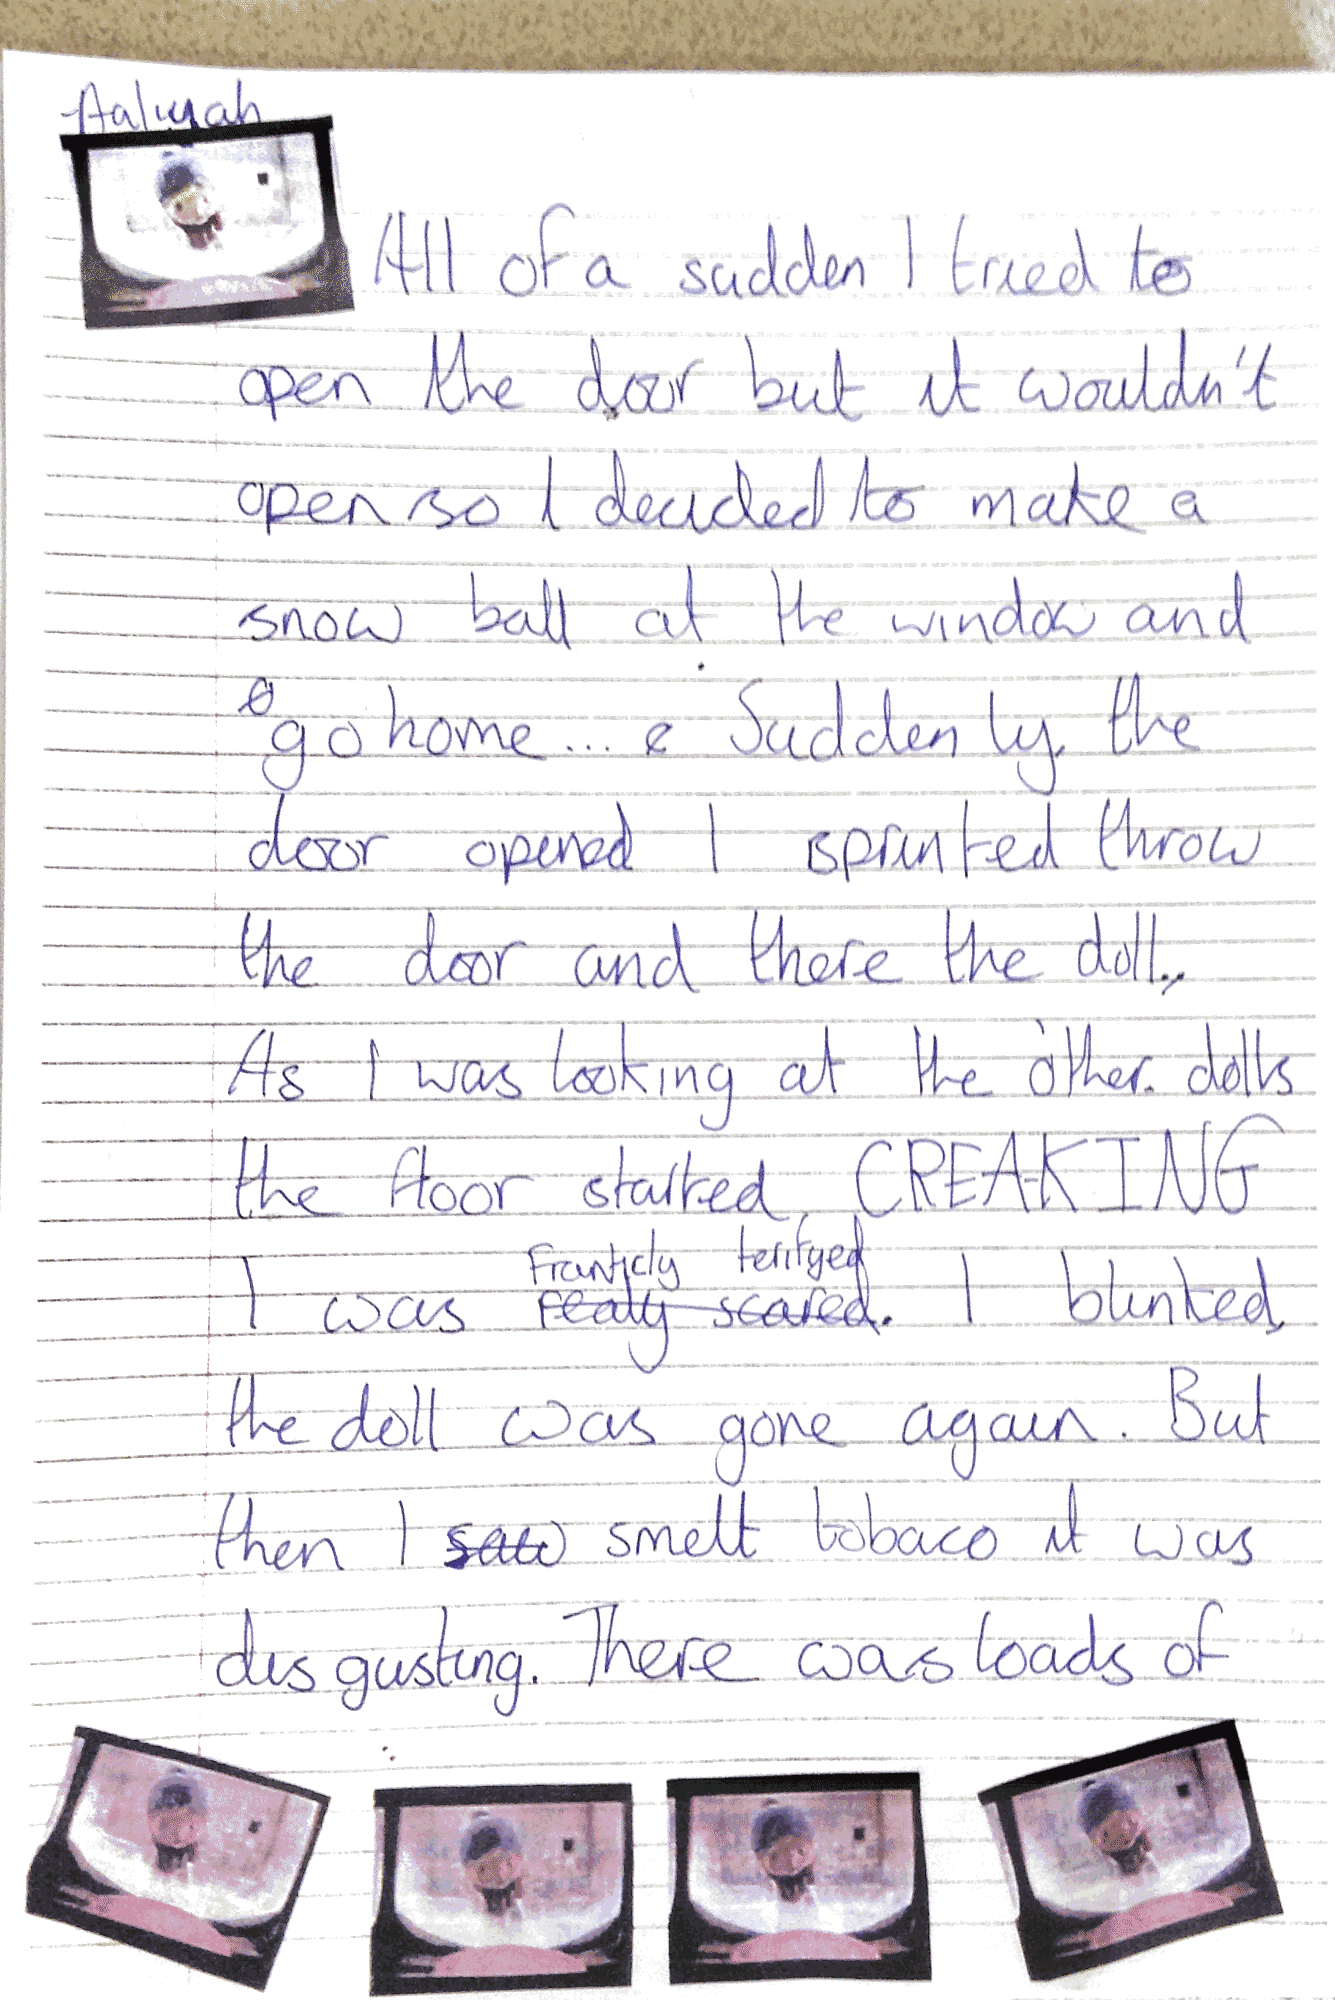 Aaliyah
All of a sudden I tried to
open the door but it wouldn't
open so I decided to make a
snow ball at the window and
go home... Suddenly the
door opened I sprinted throw
the door and there the doll..,
As I was looking at the other dolls
the floor started CREAKING
Franticly terifyed
I was realy scared. I blinked,
the doll was gone again. But
then I saw smelt tobaco it was
disgusting. There was loads of